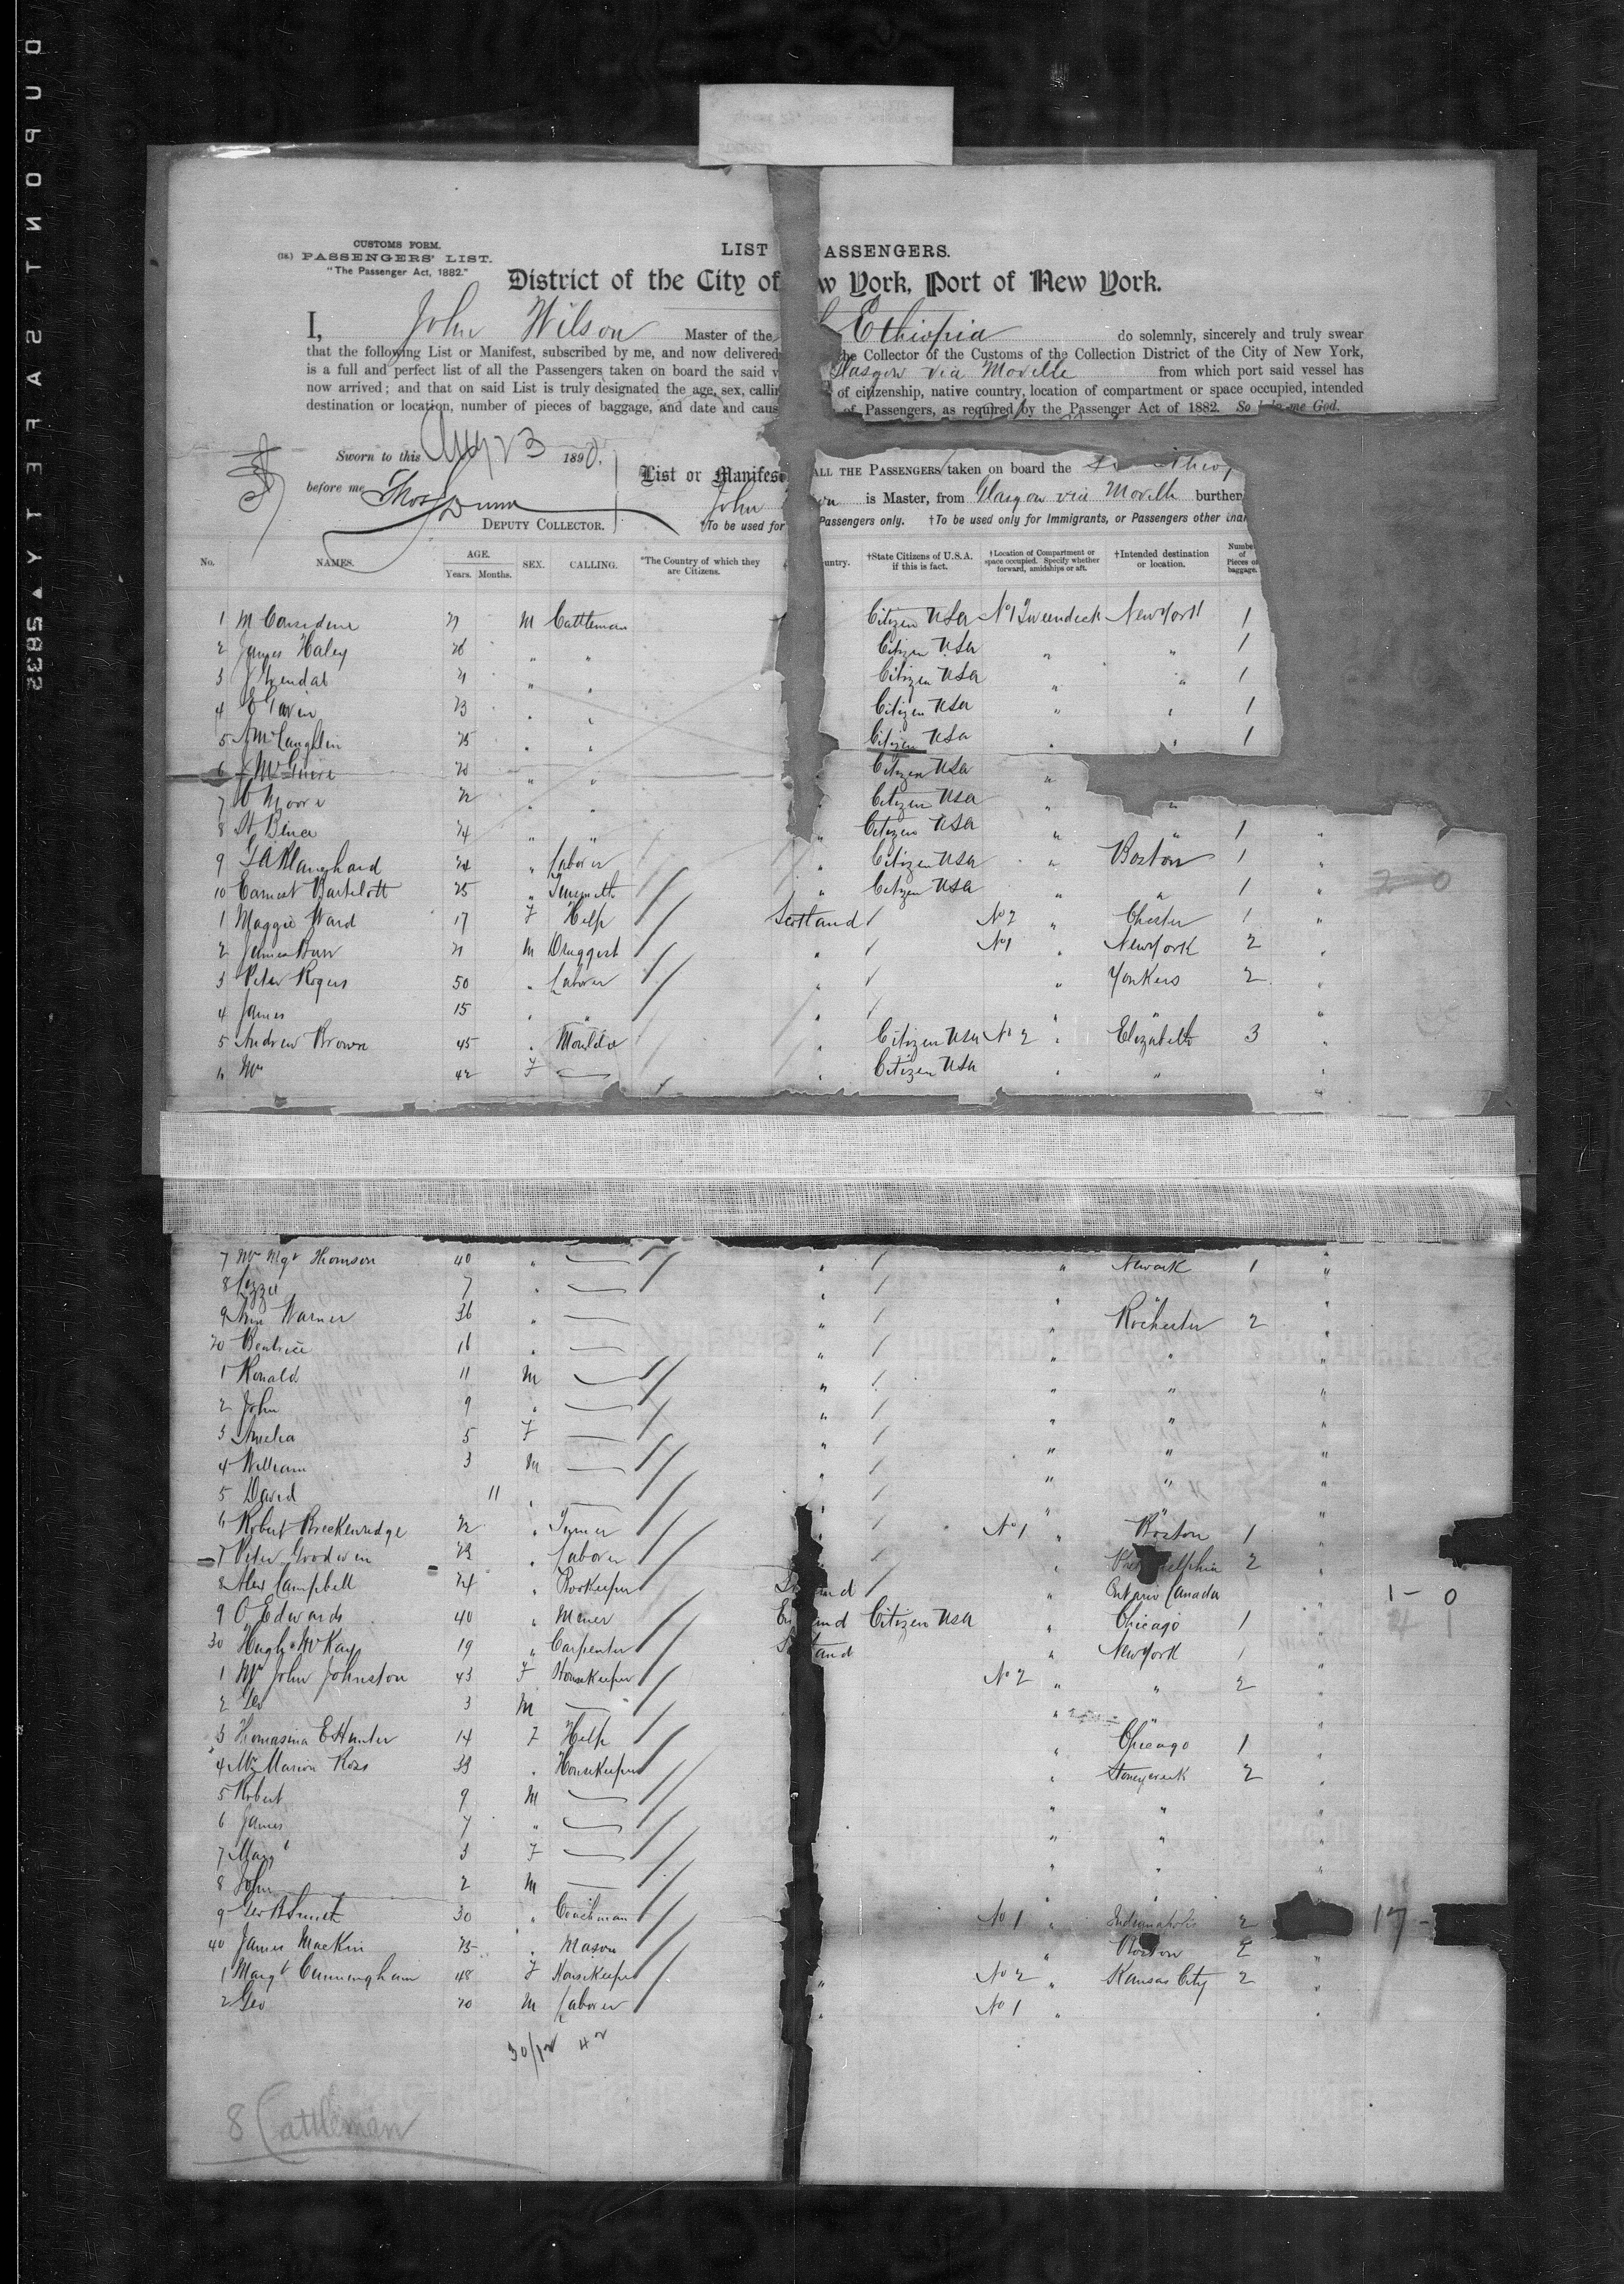 DUPONT SAFETY 5832
CUSTOMS FORM.
(18.) PASSENGERS' LIST.
"The Passenger Act, 1882."
LIST ASSENGERS.
District of the City of w York, Port of New York.
I, John Wilson Master of the Ethiopia do solemnly, sincerely and truly swear
that the following List or Manifest, subscribed by me, and now delivered he Collector of the Customs of the Collection District of the City of New York,
is a full and perfect list of all the Passengers taken on board the said v Glasgow via Moville from which port said vessel has
now arrived; and that on said List is truly designated the age, sex, callin of citizenship, native country, location of compartment or space occupied, intended
destination or location, number of pieces of baggage, and date and caus of Passengers, as required by the Passenger Act of 1882. So help me God.
Sworn to this Aug 23 1890.
before me Thos Dunn
DEPUTY COLLECTOR.
List or Manifes ALL THE PASSENGERS taken on board the
John is Master, from Glasgow via Moville burthen
*To be used for Passengers only. †To be used only for Immigrants, or Passengers other than
No. NAMES. AGE. Years. Months. SEX. CALLING. *The Country of which they are Citizens. untry. †State Citizens of U.S.A. if this is fact. †Location of Compartment or space occupied. Specify whether forward, amidships or aft. †Intended destination or location. Number of Pieces of baggage.
1 M Considine 21 M Cattleman Citizen USA No 1 Tweendeck New York 1
2 James Haley 26 " " Citizen USA " " 1
3 J Kendal 21 " " Citizen USA " " 1
4 E Gavin 23 " " Citizen USA " " 1
5 A McLaughlin 25 " " Citizen USA " " 1
6 J McGuire 20 " " Citizen USA "
7 Moore 22 " " Citizen USA " "
8 24 " " " Citizen USA " " 1 "
9 24 " Laborer " Citizen USA " Boston 1 "
10 Earnest Bartelott 25 " Tinsmith " Citizen USA " " 1 "
1 Maggie Ward 17 F Help Scotland / No 2 " Chester 1 "
2 James Barr 21 M Druggist " / No 1 " New York 2 "
3 Peter Rogers 50 " Laborer " / " Yonkers 2 "
4 James 15 " " " / " " "
5 Andrew Brown 45 " Moulder " Citizen USA No 2 " Elizabeth 3 "
6 Mrs 42 F — " Citizen USA " " "
7 Mrs Mgt Thomson 40 " — " / " Newark 1 "
8 Lizzie 7 " — " / " " "
9 Ann Warner 36 " — " / " Rochester 2 "
20 Beatrice 16 " — " / " " "
1 Ronald 11 M — " / " " "
2 John 9 " — " / " " "
3 Amelia 5 F — " / " " "
4 William 3 M — " / " " "
5 David 11 " — " / " " "
6 Robert Breckenridge 22 " Turner " / No 1 " Boston 1
7 Peter Goodwin 23 " Laborer / " elphia 2 "
8 Alex Campbell 24 " Bookeeper nd / " Ontario Canada " 1 - 0
9 O Edwards 40 " Miner En and Citizen USA " Chicago 1 "
30 Hugh McKay 19 " Carpenter S and " New York 1 "
1 Mrs John Johnston 43 F Housekeeper No 2 " " 2 "
2 Geo 3 M — " " "
3 Thomasina E Hunter 14 F Help " Chicago 1 "
4 Mrs Marion Ross 33 " Housekeeper " Stoneycreek 2 "
5 Robert 9 M — " " "
6 James 7 " — " " "
7 Margt 3 F — " " "
8 John 2 M — " "
9 Geo B Smith 30 " Coachman No 1 " Indianapolis 2 17 -
40 James Mackin 25 " Mason " Boston 2 "
1 Margt Cunningham 48 F Housekeeper " No 2 " Kansas City 2 "
2 Geo 20 M Laborer " No 1 " "
8 Cattleman